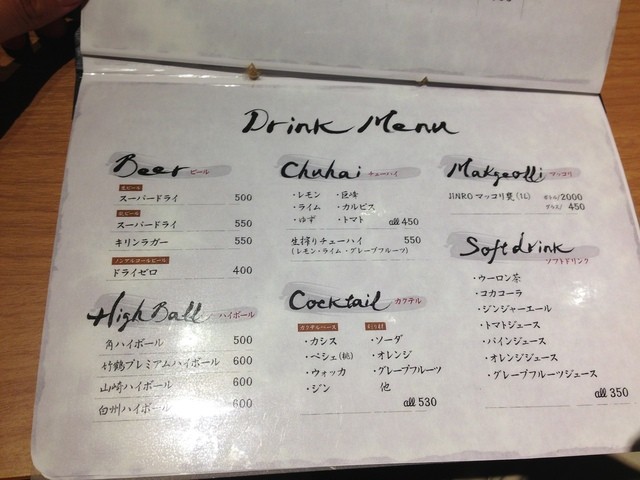 Drink Menu
Beer ビール
生ビール
スーパードライ 500
瓶ビール
スーパードライ 550
キリンラガー 550
ノンアルコールビール
ドライゼロ 400
High Ball ハイボール
角ハイボール 500
竹鶴プレミアムハイボール 600
山崎ハイボール 600
白州ハイボール 600
Chuhai チューハイ
・レモン ・巨峰
・ライム ・カルピス
・ゆず ・トマト all 450
生搾りチューハイ 550
(レモン・ライム・グレープフルーツ)
Cocktail カクテル
カクテルベース 割り材
・カシス ・ソーダ
・ペシェ(桃) ・オレンジ
・ウォッカ ・グレープフルーツ
・ジン 他
all 530
Makgeolli マッコリ
JINRO マッコリ甕(1L) ボトル/2000
グラス/ 450
Softdrink
ソフトドリンク
・ウーロン茶
・コカコーラ
・ジンジャーエール
・トマトジュース
・パインジュース
・オレンジジュース
・グレープフルーツジュース
all 350